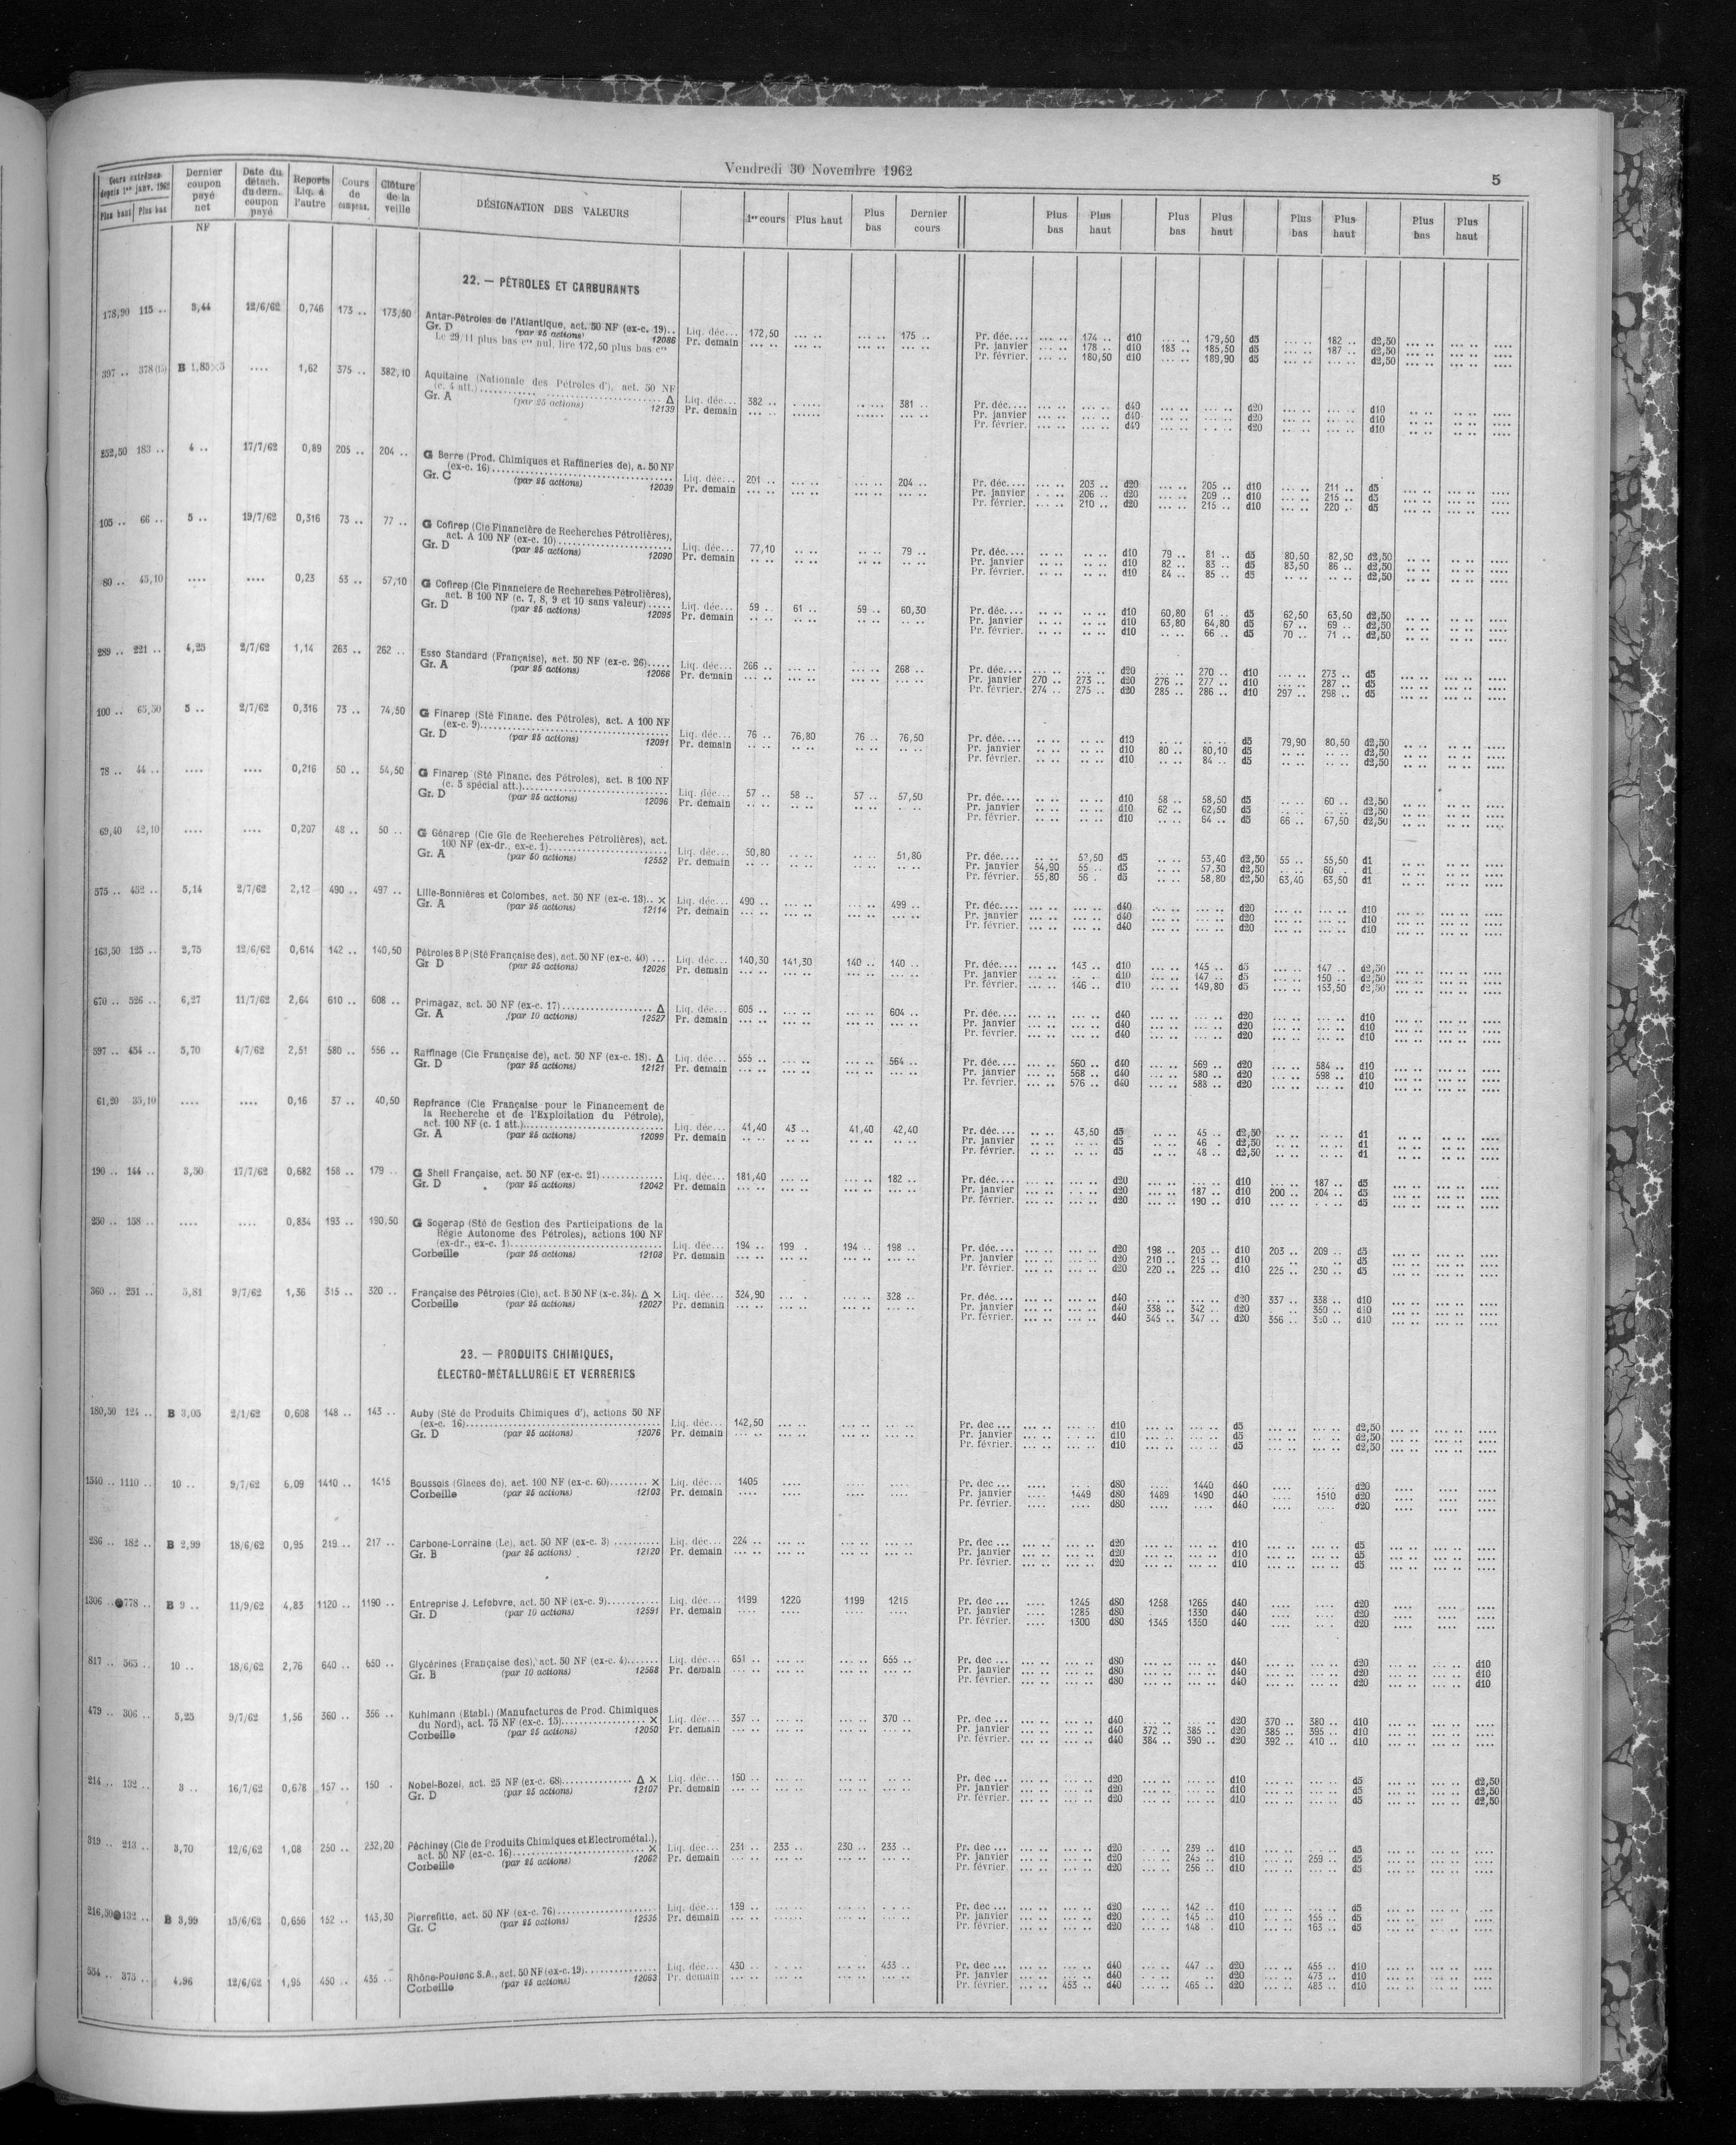 Vendredi 30 Novembre 1962
5
Cours extrêmes depuis 1er janv. 1962 Plus haut Plus bas | Dernier coupon payé net NF | Date du détach. du dern. coupon payé | Reports Liq. à l'autre | Cours de compens. | Clôture de la veille | DÉSIGNATION DES VALEURS | 1er cours | Plus haut | Plus bas | Dernier cours | Plus bas | Plus haut | Plus bas | Plus haut | Plus bas | Plus haut | Plus bas | Plus haut
22. — PÉTROLES ET CARBURANTS
178,90 115 .. 3,44 12/6/62 0,746 173 .. 173,50 Antar-Pétroles de l'Atlantique, act. 50 NF (ex-c. 19)..
Gr. D (par 25 actions) 12086 Liq. déc... 172,50 175 .. Pr. déc.... 174 .. d10 179,50 d5 182 .. d2,50
Le 29/11 plus bas crs nul, lire 172,50 plus bas crs Pr. demain Pr. janvier 178 .. d10 183 .. 185,50 d5 187 .. d2,50
Pr. février. 180,50 d10 189,90 d5 d2,50
397 .. 378 (15) B 1,85×5 .... 1,62 375 .. 382,10 Aquitaine (Nationale des Pétroles d'), act. 50 NF
(c. 4 att.) Δ Liq. déc... 382 .. 381 .. Pr. déc.... d40 d20 d10
Gr. A (par 25 actions) 12139 Pr. demain Pr. janvier d40 d20 d10
Pr. février. d40 d20 d10
252,50 183 .. 4 .. 17/7/62 0,89 205 .. 204 .. G Berre (Prod. Chimiques et Raffineries de), a. 50 NF
(ex-c. 16) Liq. déc... 201 .. 204 .. Pr. déc.... 203 .. d20 205 .. d10 211 .. d5
Gr. C (par 25 actions) 12039 Pr. demain Pr. janvier 206 .. d20 209 .. d10 215 .. d5
Pr. février. 210 .. d20 215 .. d10 220 .. d5
105 .. 66 .. 5 .. 19/7/62 0,316 73 .. 77 .. G Cofirep (Cie Financière de Recherches Pétrolières),
act. A 100 NF (ex-c. 10) Liq. déc... 77,10 79 .. Pr. déc.... d10 79 .. 81 .. d5 80,50 82,50 d2,50
Gr. D (par 25 actions) 12090 Pr. demain Pr. janvier d10 82 .. 83 .. d5 83,50 86 .. d2,50
Pr. février. d10 84 .. 85 .. d5 d2,50
80 .. 43,10 .... .... 0,23 53 .. 57,10 G Cofirep (Cie Financiere de Recherches Pétrolières),
act. B 100 NF (c. 7, 8, 9 et 10 sans valeur) Liq. déc... 59 .. 61 .. 59 .. 60,30 Pr. déc.... d10 60,80 61 .. d5 62,50 63,50 d2,50
Gr. D (par 25 actions) 12095 Pr. demain Pr. janvier d10 63,80 64,80 d5 67 .. 69 .. d2,50
Pr. février. d10 66 .. d5 70 .. 71 .. d2,50
289 .. 221 .. 4,25 2/7/62 1,14 263 .. 262 .. Esso Standard (Française), act. 50 NF (ex-c. 26) Liq. déc... 266 .. 268 .. Pr. déc.... d20 270 .. d10 273 .. d5
Gr. A (par 25 actions) 12066 Pr. demain Pr. janvier 270 .. 273 .. d20 276 .. 277 .. d10 287 .. d5
Pr. février. 274 .. 275 .. d20 285 .. 286 .. d10 297 .. 298 .. d5
100 .. 65,50 5 .. 2/7/62 0,316 73 .. 74,50 G Finarep (Sté Financ. des Pétroles), act. A 100 NF
(ex-c. 9) Liq. déc... 76 .. 76,80 76 .. 76,50 Pr. déc.... d10 d5 79,90 80,50 d2,50
Gr. D (par 25 actions) 12091 Pr. demain Pr. janvier d10 80 .. 80,10 d5 d2,50
Pr. février. d10 84 .. d5 d2,50
78 .. 44 .. .... .... 0,216 50 .. 54,50 G Finarep (Sté Financ. des Pétroles), act. B 100 NF
(c. 5 spécial att.) Liq. déc... 57 .. 58 .. 57 .. 57,50 Pr. déc.... d10 58 .. 58,50 d5 60 .. d2,50
Gr. D (par 25 actions) 12096 Pr. demain Pr. janvier d10 62 .. 62,50 d5 d2,50
Pr. février. d10 64 .. d5 66 .. 67,50 d2,50
69,40 42,10 .... .... 0,207 48 .. 50 .. G Génarep (Cie Gle de Recherches Pétrolières), act.
100 NF (ex-dr., ex-c. 1) Liq. déc... 50,80 51,80 Pr. déc.... 52,50 d5 53,40 d2,50 55 .. 55,50 d1
Gr. A (par 50 actions) 12552 Pr. demain Pr. janvier 54,90 55 .. d5 57,30 d2,50 60 .. d1
Pr. février. 55,80 56 . d5 58,80 d2,50 63,40 63,50 d1
575 .. 452 .. 5,14 2/7/62 2,12 490 .. 497 .. Lille-Bonnières et Colombes, act. 50 NF (ex-c. 13).. × Liq. déc... 490 .. 499 .. Pr. déc.... d40 d20 d10
Gr. A (par 25 actions) 12114 Pr. demain Pr. janvier d40 d20 d10
Pr. février. d40 d20 d10
163,50 125 .. 2,75 12/6/62 0,614 142 .. 140,50 Pétroles B P (Sté Française des), act. 50 NF (ex-c. 40) ... Liq. déc... 140,30 141,30 140 .. 140 .. Pr. déc.... 143 .. d10 145 .. d5 147 .. d2,50
Gr D (par 25 actions) 12026 Pr. demain Pr. janvier d10 147 .. d5 150 .. d2,50
Pr. février. 146 .. d10 149,80 d5 153,50 d2,50
670 .. 526 .. 6,27 11/7/62 2,64 610 .. 608 .. Primagaz, act. 50 NF (ex-c. 17) Δ Liq. déc... 605 .. 604 .. Pr. déc.... d40 d20 d10
Gr. A (par 10 actions) 12527 Pr. demain Pr. janvier d40 d20 d10
Pr. février. d40 d20 d10
597 .. 454 .. 5,70 4/7/62 2,51 580 .. 556 .. Raffinage (Cie Française de), act. 50 NF (ex-c. 18). Δ Liq. déc... 555 .. 564 .. Pr. déc.... 560 .. d40 569 .. d20 584 .. d10
Gr. D (par 25 actions) 12121 Pr. demain Pr. janvier 568 .. d40 580 .. d20 598 .. d10
Pr. février. 576 .. d40 588 .. d20 d10
61,20 35,10 .... .... 0,16 37 .. 40,50 Repfrance (Cie Française pour le Financement de
la Recherche et de l'Exploitation du Pétrole),
act. 100 NF (c. 1 att.) Liq. déc... 41,40 43 .. 41,40 42,40 Pr. déc.... 43,50 d5 45 .. d2,50 d1
Gr. A (par 25 actions) 12099 Pr. demain Pr. janvier d5 46 .. d2,50 d1
Pr. février. d5 48 .. d2,50 d1
190 .. 144 .. 3,50 17/7/62 0,682 158 .. 179 .. G Shell Française, act. 50 NF (ex-c. 21) Liq. déc... 181,40 182 .. Pr. déc.... d20 d10 187 .. d5
Gr. D (par 25 actions) 12042 Pr. demain Pr. janvier d20 187 .. d10 200 .. 204 .. d5
Pr. février. d20 190 .. d10 d5
250 .. 158 .. .... .... 0,834 193 .. 190,50 G Sogerap (Sté de Gestion des Participations de la
Régie Autonome des Pétroles), actions 100 NF
(ex-dr., ex-c. 1) Liq. déc... 194 .. 199 . 194 .. 198 .. Pr. déc.... d20 198 .. 203 .. d10 203 .. 209 .. d5
Corbeille (par 25 actions) 12108 Pr. demain Pr. janvier d20 210 .. 215 .. d10 d5
Pr. février. d20 220 .. 225 .. d10 225 .. 230 .. d5
360 .. 251 .. 5,81 9/7/62 1,36 315 .. 320 .. Française des Pétroles (Cie), act. B 50 NF (x-c. 34). Δ × Liq. déc... 324,90 328 .. Pr. déc.... d40 d20 337 .. 338 .. d10
Corbeille (par 25 actions) 12027 Pr. demain Pr. janvier d40 338 .. 342 .. d20 350 .. d10
Pr. février. d40 345 .. 347 .. d20 356 .. d10
23. — PRODUITS CHIMIQUES,
ÉLECTRO-MÉTALLURGIE ET VERRERIES
180,50 124 .. B 3,05 2/1/62 0,608 148 .. 143 .. Auby (Sté de Produits Chimiques d'), actions 50 NF
(ex-c. 16) Liq. déc... 142,50 Pr. dec ... d10 d5 d2,50
Gr. D (par 25 actions) 12076 Pr. demain Pr. janvier d10 d5 d2,50
Pr. février. d10 d5 d2,50
1540 .. 1110 .. 10 .. 9/7/62 6,09 1410 .. 1415 Boussois (Glaces de), act. 100 NF (ex-c. 60) × Liq. déc... 1405 Pr. dec ... d80 1440 d40 d20
Corbeille (par 25 actions) 12103 Pr. demain Pr. janvier 1449 d80 1489 1490 d40 1510 d20
Pr. février. d80 d40 d20
286 .. 182 .. B 2,99 18/6/62 0,95 219 .. 217 .. Carbone-Lorraine (Le), act. 50 NF (ex-c. 3) Liq. déc... 224 .. Pr. dec ... d20 d10 d5
Gr. B (par 25 actions) 12120 Pr. demain Pr. janvier d20 d10 d5
Pr. février. d20 d10 d5
1306 .. ●778 .. B 9 .. 11/9/62 4,83 1120 .. 1190 .. Entreprise J. Lefebvre, act. 50 NF (ex-c. 9) Liq. déc... 1199 1220 1199 1215 Pr. dec ... 1245 d80 1258 1265 d40 d20
Gr. D (par 10 actions) 12591 Pr. demain Pr. janvier 1285 d80 1330 d40 d20
Pr. février. 1300 d80 1345 1350 d40 d20
817 .. 565 .. 10 .. 18/6/62 2,76 640 .. 650 .. Glycérines (Française des), act. 50 NF (ex-c. 4) Liq. déc... 651 .. 655 .. Pr. dec ... d80 d40 d20 d10
Gr. B (par 10 actions) 12568 Pr. demain Pr. janvier d80 d40 d20 d10
Pr. février. d80 d40 d20 d10
479 .. 306 .. 5,25 9/7/62 1,56 360 .. 356 .. Kuhlmann (Etabl.) (Manufactures de Prod. Chimiques
du Nord), act. 75 NF (ex-c. 15) × Liq. déc... 357 .. 370 .. Pr. dec ... d40 d20 370 .. 380 .. d10
Corbeille (par 25 actions) 12050 Pr. demain Pr. janvier d40 372 .. 385 .. d20 385 .. 395 .. d10
Pr. février. d40 384 .. 390 .. d20 392 .. 410 .. d10
214 .. 132 .. 3 .. 16/7/62 0,678 157 .. 150 . Nobel-Bozel, act. 25 NF (ex-c. 68) Δ × Liq. déc... 150 .. Pr. dec ... d20 d10 d5 d2,50
Gr. D (par 25 actions) 12107 Pr. demain Pr. janvier d20 d10 d5 d2,50
Pr. février. d20 d10 d5 d2,50
319 .. 213 .. 3,70 12/6/62 1,08 250 .. 232,20 Péchiney (Cie de Produits Chimiques et Electrométal.),
act. 50 NF (ex-c. 16) × Liq. déc... 231 .. 233 .. 230 .. 233 .. Pr. dec ... d20 239 .. d10 d5
Corbeille (par 25 actions) 12062 Pr. demain Pr. janvier d20 245 .. d10 259 .. d5
Pr. février. d20 256 .. d10 d5
216,50 ●132 .. B 3,99 15/6/62 0,656 152 .. 143,30 Pierrefitte, act. 50 NF (ex-c. 76) Liq. déc... 139 .. Pr. dec ... d20 142 .. d10 d5
Gr. C (par 25 actions) 12535 Pr. demain Pr. janvier d20 145 .. d10 155 .. d5
Pr. février. d20 148 . d10 163 .. d5
554 .. 375 .. 4,96 12/6/62 1,95 450 .. 435 .. Rhône-Poulenc S.A., act. 50 NF (ex-c. 19) Liq. déc... 430 .. 433 .. Pr. dec ... d40 447 .. d20 455 .. d10
Corbeille (par 25 actions) 12053 Pr. demain Pr. janvier d40 d20 473 .. d10
Pr. février. 453 .. d40 465 .. d20 483 .. d10